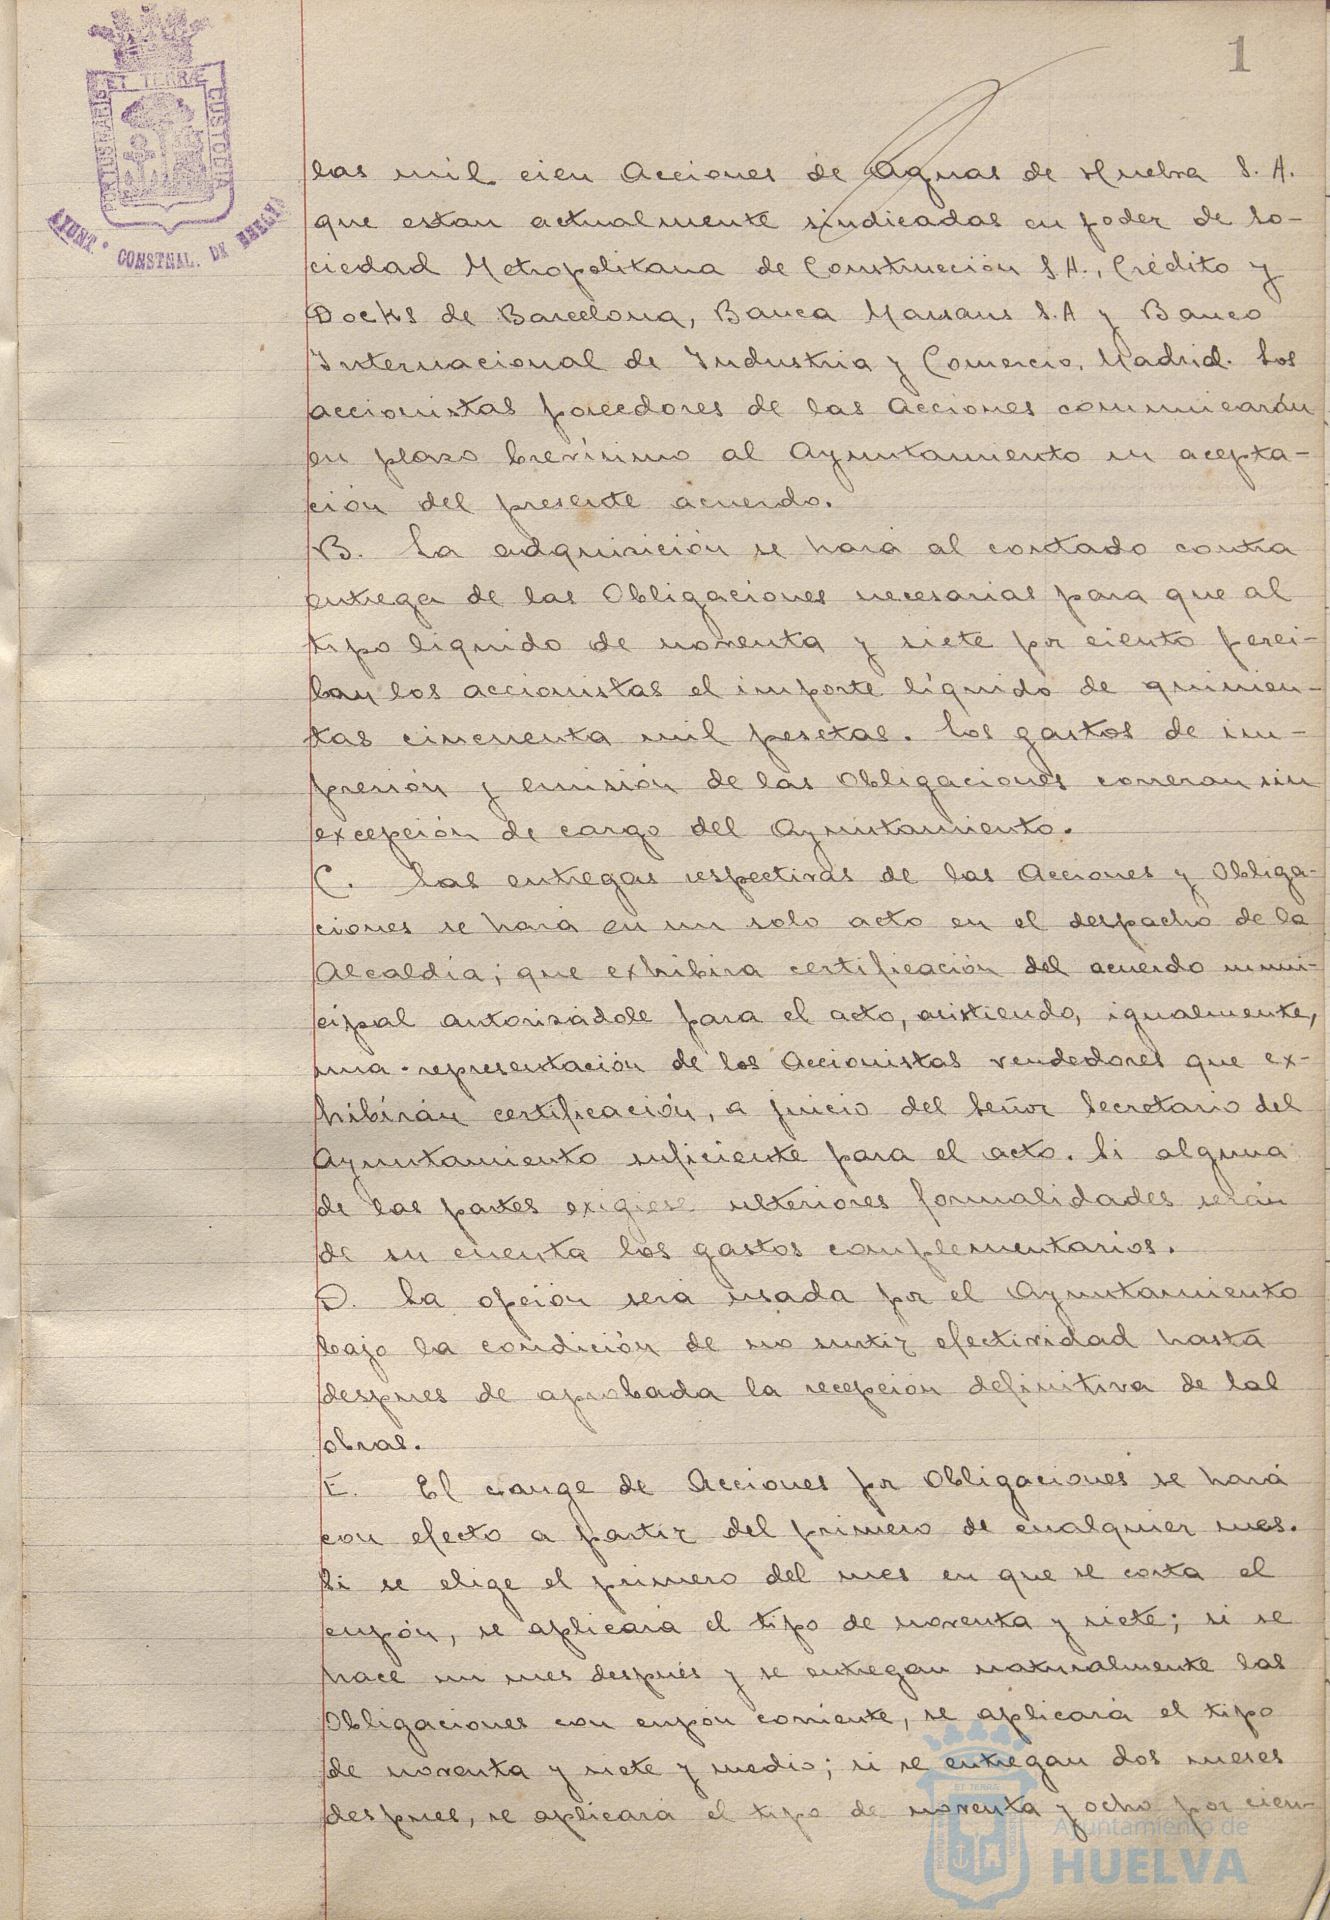 1
ET TERRÆ
PORTUS MARIS
CUSTODIA
AYUNT. CONSTNAL. DE HUELVA
las mil cien Acciones de Aguas de Huelva S. A.
que estan actualmente sindicadas en poder de So-
ciedad Metropolitana de Construcción S.A., Crédito y
Docks de Barcelona, Banca Marsans S.A y Banco
Internacional de Industria y Comercio, Madrid. Los
accionistas poseedores de las Acciones comunicarán
en plazo brevísimo al Ayuntamiento su acepta-
ción del presente acuerdo.
B. La adquisición se hará al contado contra
entrega de las Obligaciones necesarias para que al
tipo líquido de noventa y siete por ciento perci-
ban los accionistas el importe líquido de quinien-
tas cincuenta mil pesetas. Los gastos de im-
presión y emisión de las Obligaciones correran sin
excepción de cargo del Ayuntamiento.
C. Las entregas respectivas de las Acciones y Obliga-
ciones se hará en un solo acto en el despacho de la
Alcaldía; que exhibira certificación del acuerdo muni-
cipal autorizádole para el acto, asistiendo, igualmente,
una representación de los Accionistas vendedores que ex-
hibirán certificación, a juicio del Señor Secretario del
Ayuntamiento suficiente para el acto. Si alguna
de las partes exigiese ulteriores formalidades serán
de su cuenta los gastos complementarios.
D. La opción será usada por el Ayuntamiento
bajo la condición de no surtir efectividad hasta
despues de aprobada la recepción definitiva de las
obras.
E. El cange de Acciones por Obligaciones se hará
con efecto a partir del primero de cualquier mes.
Si se elige el primero del mes en que se corta el
cupón, se aplicará el tipo de noventa y siete; si se
hace un mes después y se entregan naturalmente las
Obligaciones con cupón corriente, se aplicará el tipo
de noventa y siete y medio; si se entregan dos meses
despues, se aplicará el tipo de noventa y ocho por cien-
Ayuntamiento de
HUELVA